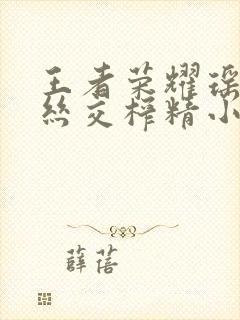 王者荣耀瑶
丝交榨精小
薛蓓